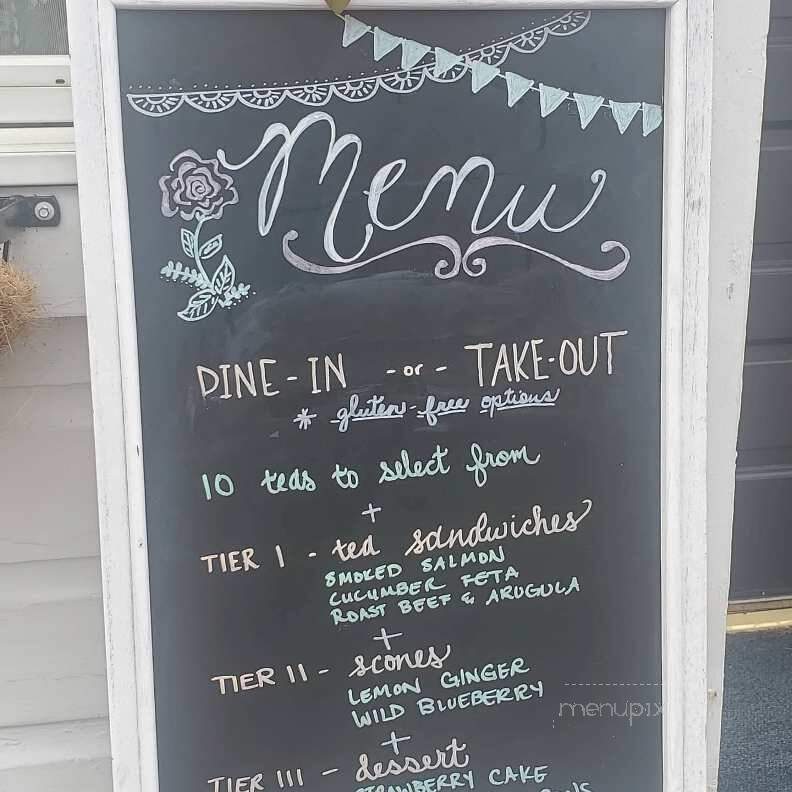 Menu
DINE-IN -or- TAKE-OUT
* gluten-free options
10 teas to select from
+
TIER I - tea sandwiches
SMOKED SALMON
CUCUMBER FETA
ROAST BEEF & ARUGULA
+
TIER II - scones
LEMON GINGER
WILD BLUEBERRY
menupix
+
TIER III - dessert
STRAWBERRY CAKE